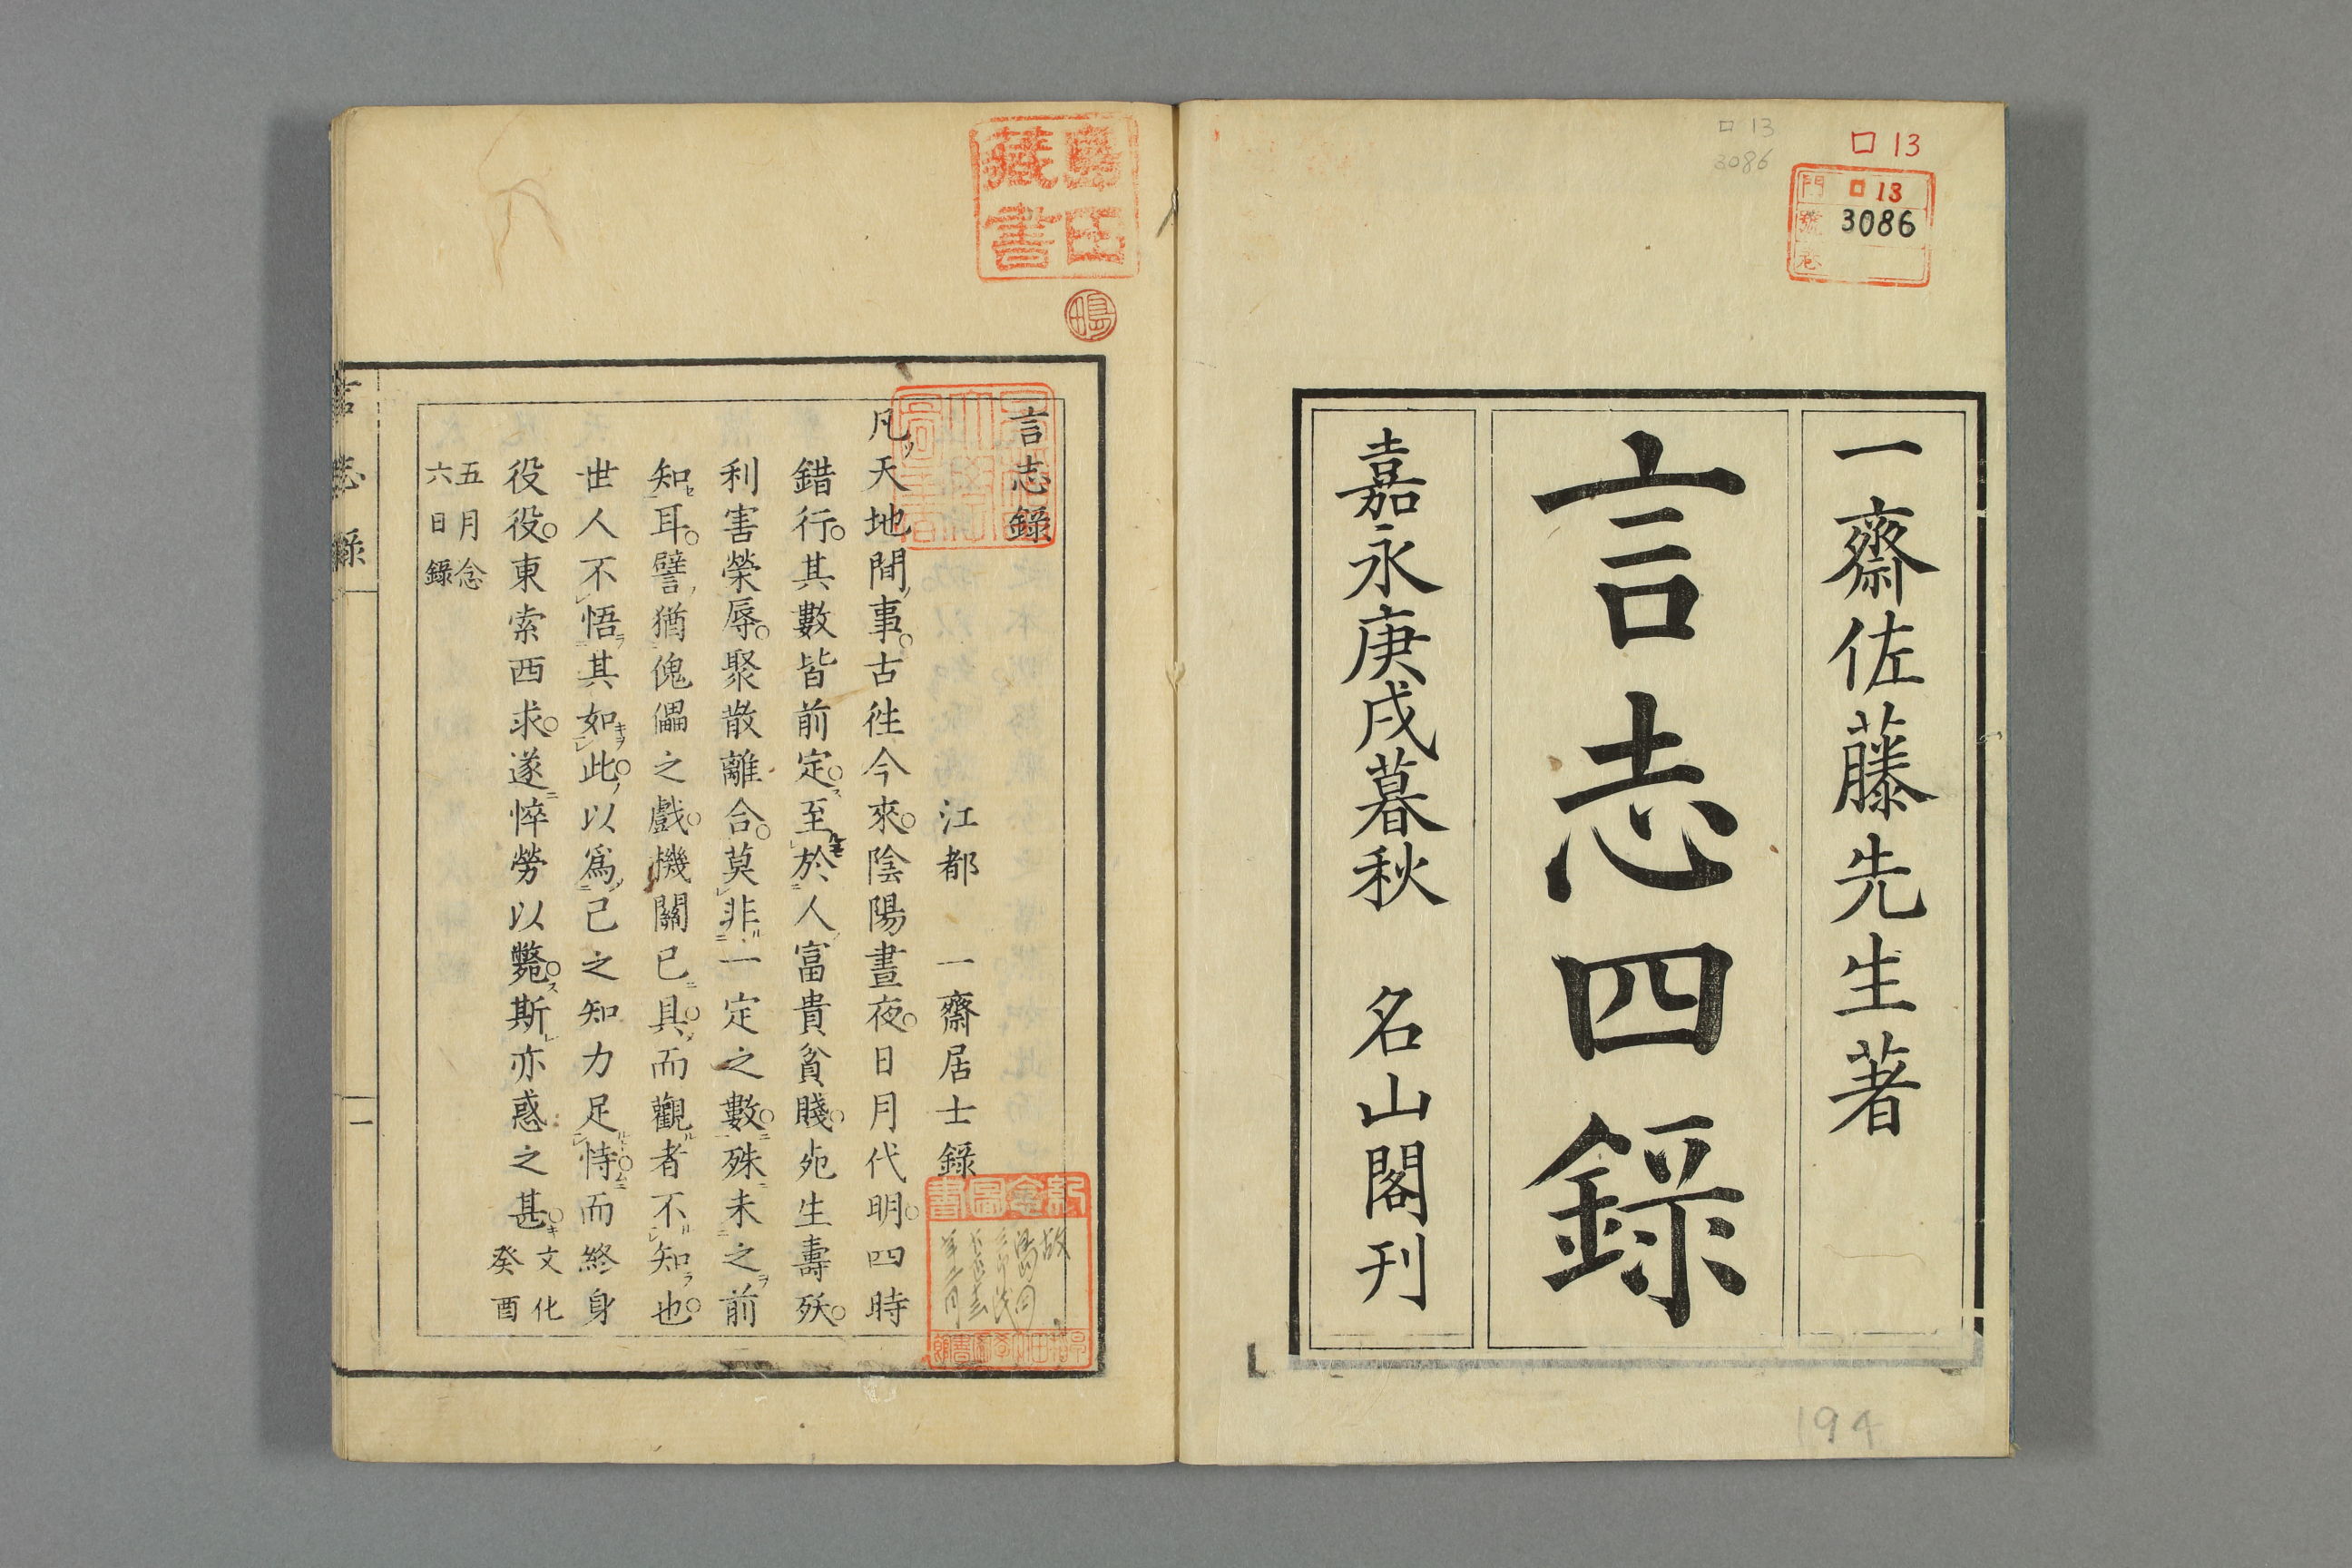 口13
3086
口13
門 口13
號 3086
卷
一齋佐藤先生著
言志四錄
嘉永庚戌暮秋 名山閣刊
194
島田
藏書
鴫
言志錄
江都 一齋居士錄
凡天地間事。古徃今來。陰陽晝夜。日月代明。四時
錯行。其數皆前定。至於人富貴貧賤。死生壽殀。
利害榮辱。聚散離合。莫非一定之數。殊未之前
知耳。譬猶傀儡之戲。機關已具。而觀者不知也。
世人不悟其如此。以爲己之知力足恃。而終身
役役。東索西求。遂悴勞以斃。斯亦惑之甚。文化
癸酉
五月念
六日錄
言志錄
一